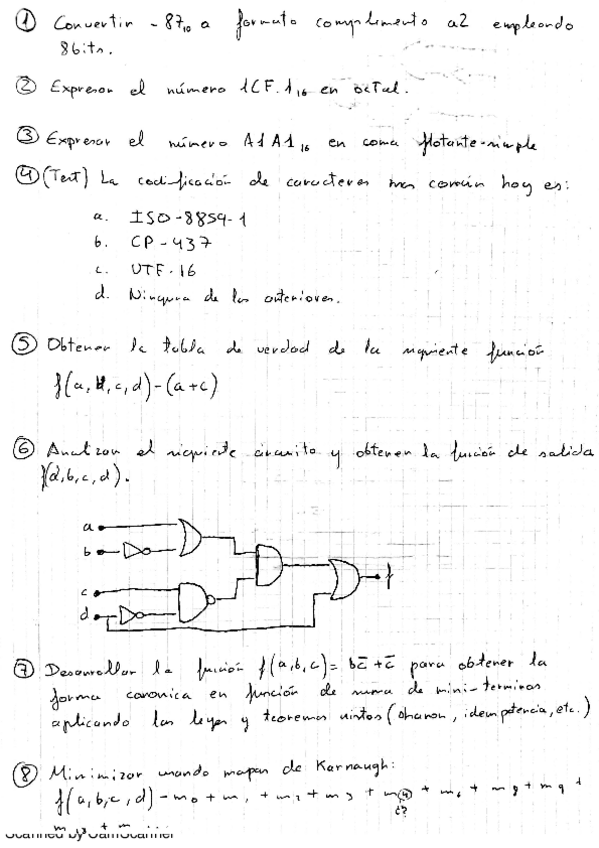 ① Convertir -87₁₀ a formato complemento a2 empleando
8bits.
② Expresar el número 1CF.1₁₆ en octal.
③ Expresar el número A1A1₁₆ en coma flotante-simple
④ (Test) La codificación de caracteres mas común hoy es:
a. ISO-8859-1
b. CP-437
c. UTF-16
d. Ninguna de las anteriores.
⑤ Obtener la tabla de verdad de la siguiente función
f(a, b, c, d) = (a+c)
⑥ Analizar el siguiente circuito y obtener la función de salida
f(a,b,c,d).
a
b
c
d
f
⑦ Desarrollar la función f(a,b,c) = bc̄ + c̄ para obtener la
forma canonica en función de suma de mini-terminos
aplicando las leyes y teoremas vistos (shanon, idempotencia, etc.)
⑧ Minimizar usando mapas de Karnaugh:
f(a,b,c,d) = m₀ + m₁ + m₂ + m₃ + m④ + m₆ + m₈ + m₉ +
¿?
Scanned by CamScanner